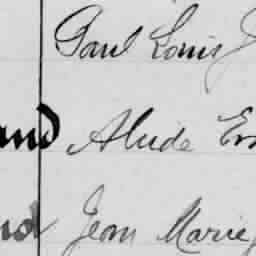 Paul Louis J
and Alcide Er
nd Jean Marie J